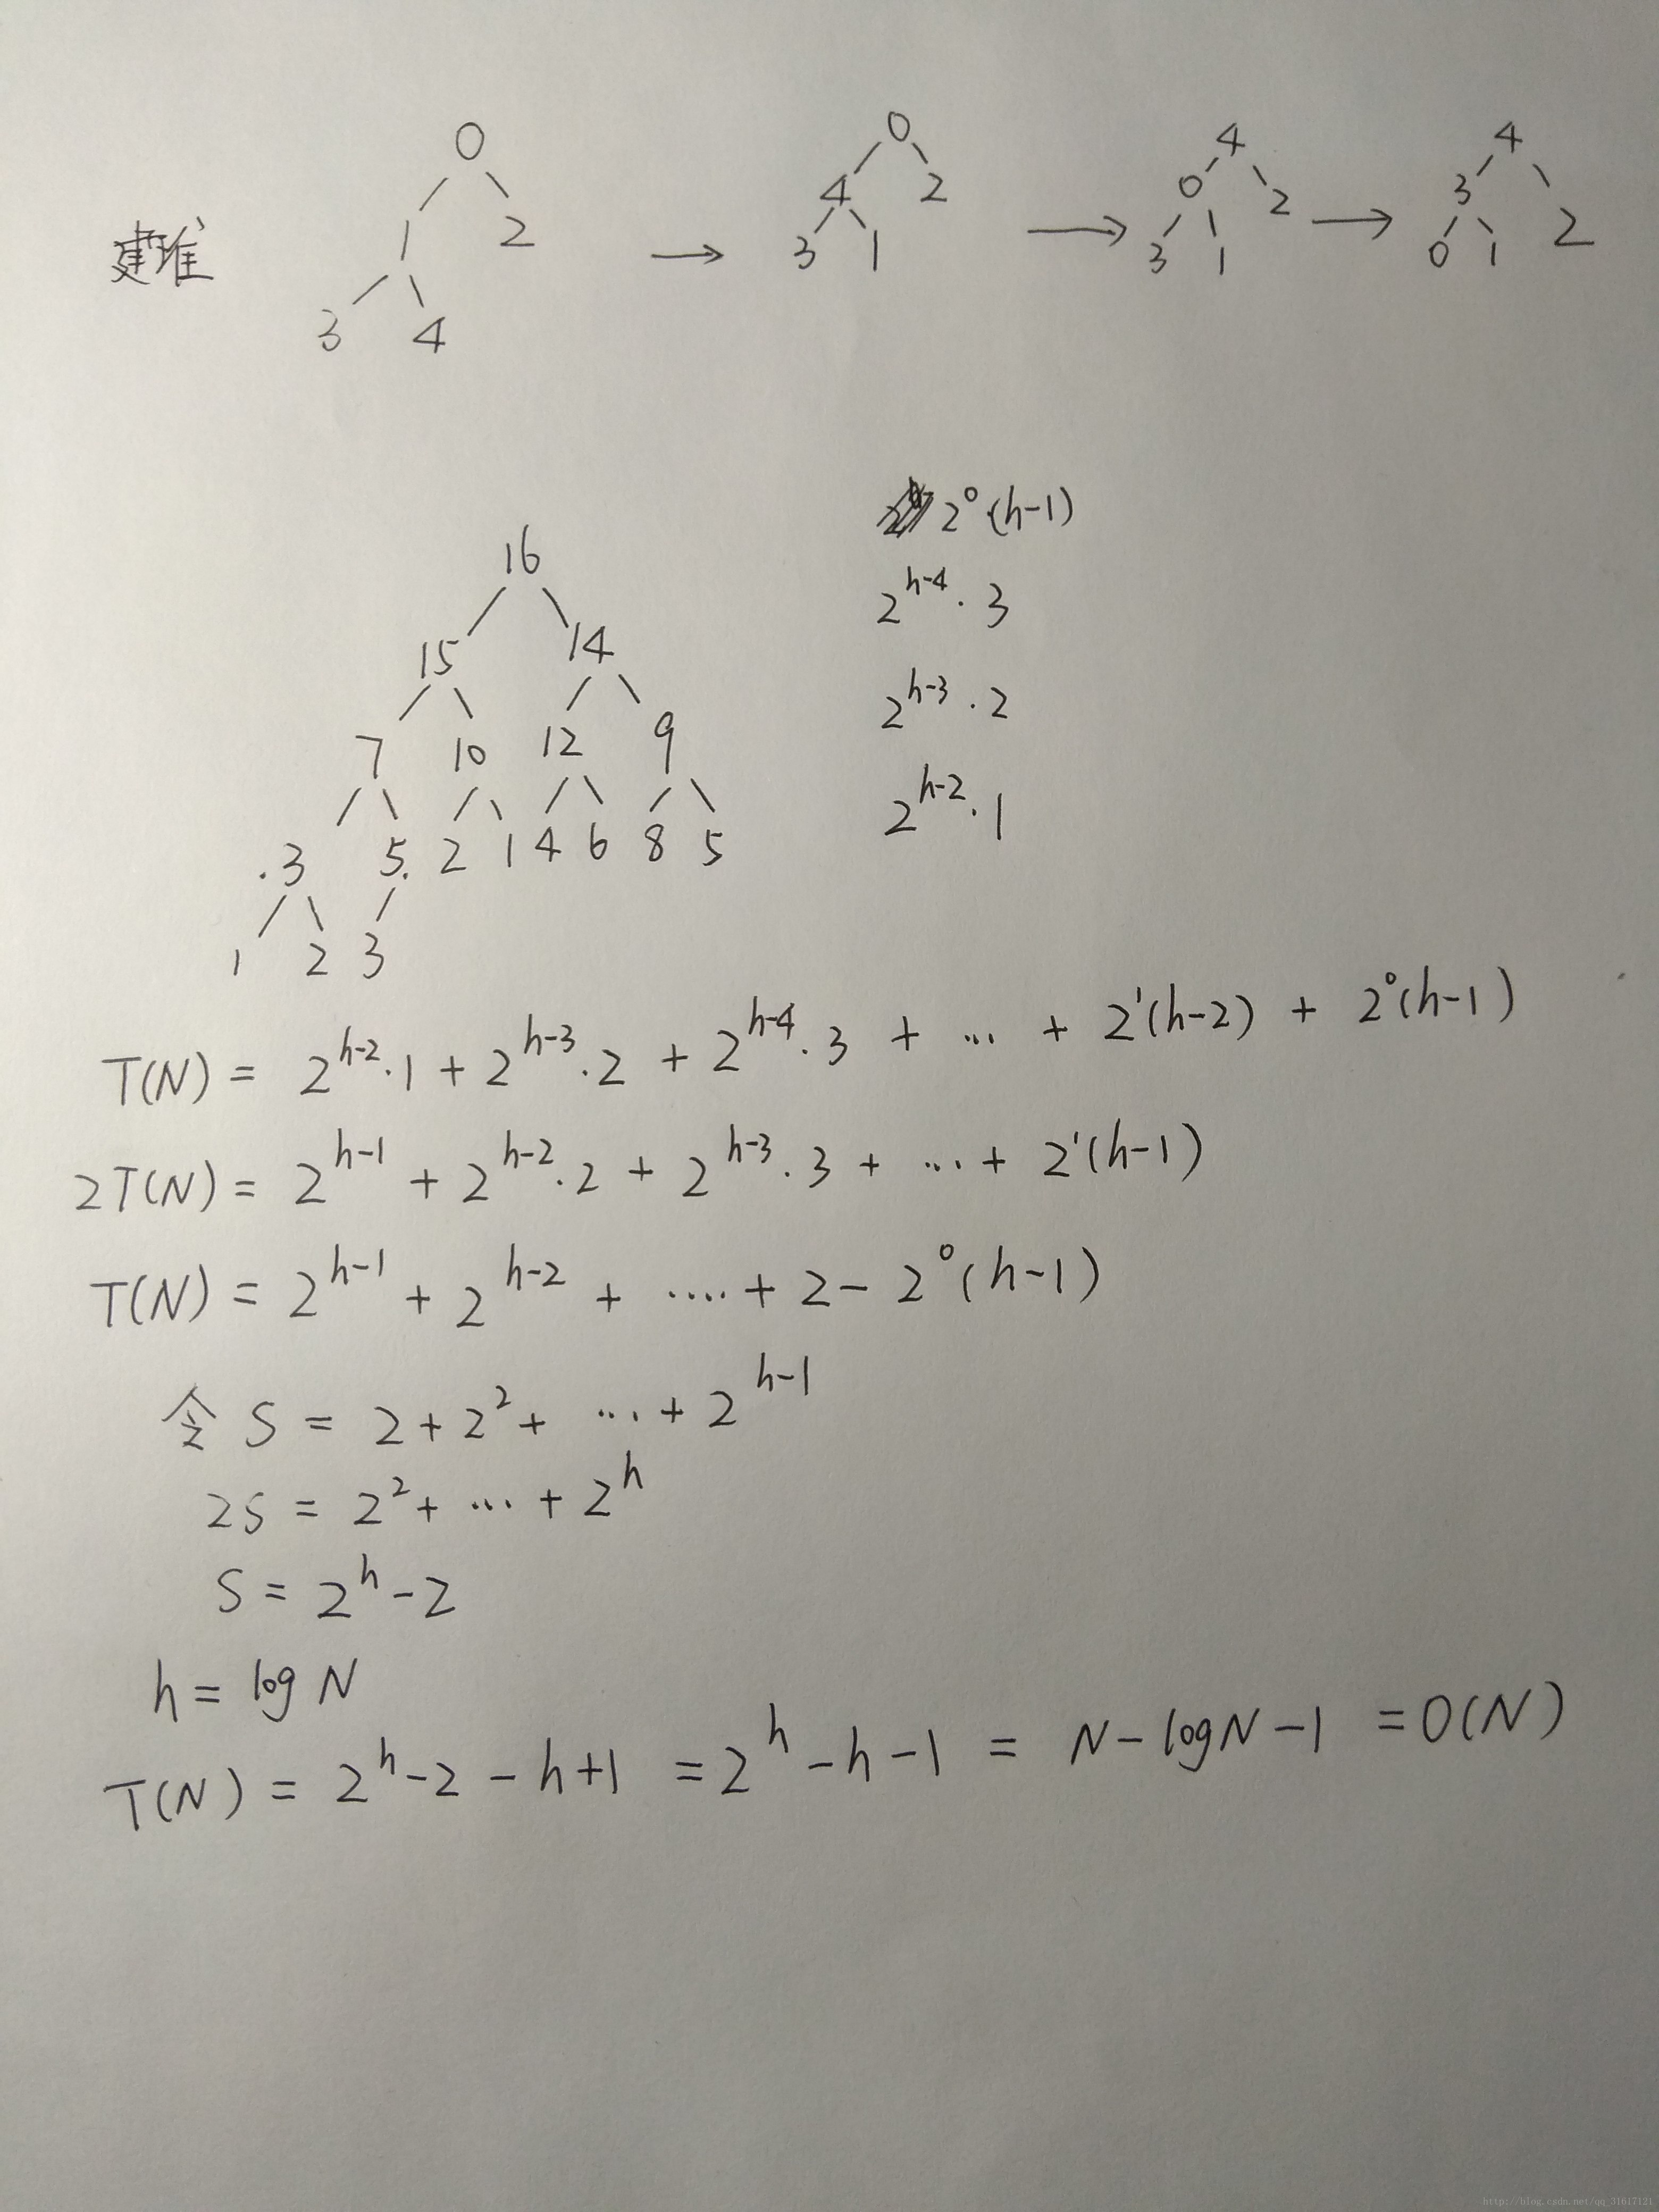 建堆
0 0 4 4
1 2 → 4 2 → 0 2 → 3 2
3 4 3 1 3 1 0 1
2⁰·(h-1)
16
2^{h-4}·3
15 14
2^{h-3}·2
7 10 12 9
2^{h-2}·1
.3 5. 2 1 4 6 8 5
1 2 3
T(N) = 2^{h-2}·1 + 2^{h-3}·2 + 2^{h-4}·3 + ... + 2^1(h-2) + 2⁰(h-1)
2T(N) = 2^{h-1} + 2^{h-2}·2 + 2^{h-3}·3 + ... + 2^1(h-1)
T(N) = 2^{h-1} + 2^{h-2} + .... + 2 - 2⁰(h-1)
令 S = 2 + 2² + ... + 2^{h-1}
2S = 2² + ... + 2^h
S = 2^h - 2
h = log N
T(N) = 2^h - 2 - h + 1 = 2^h - h - 1 = N - logN - 1 = O(N)
http://blog.csdn.net/qq_31617121